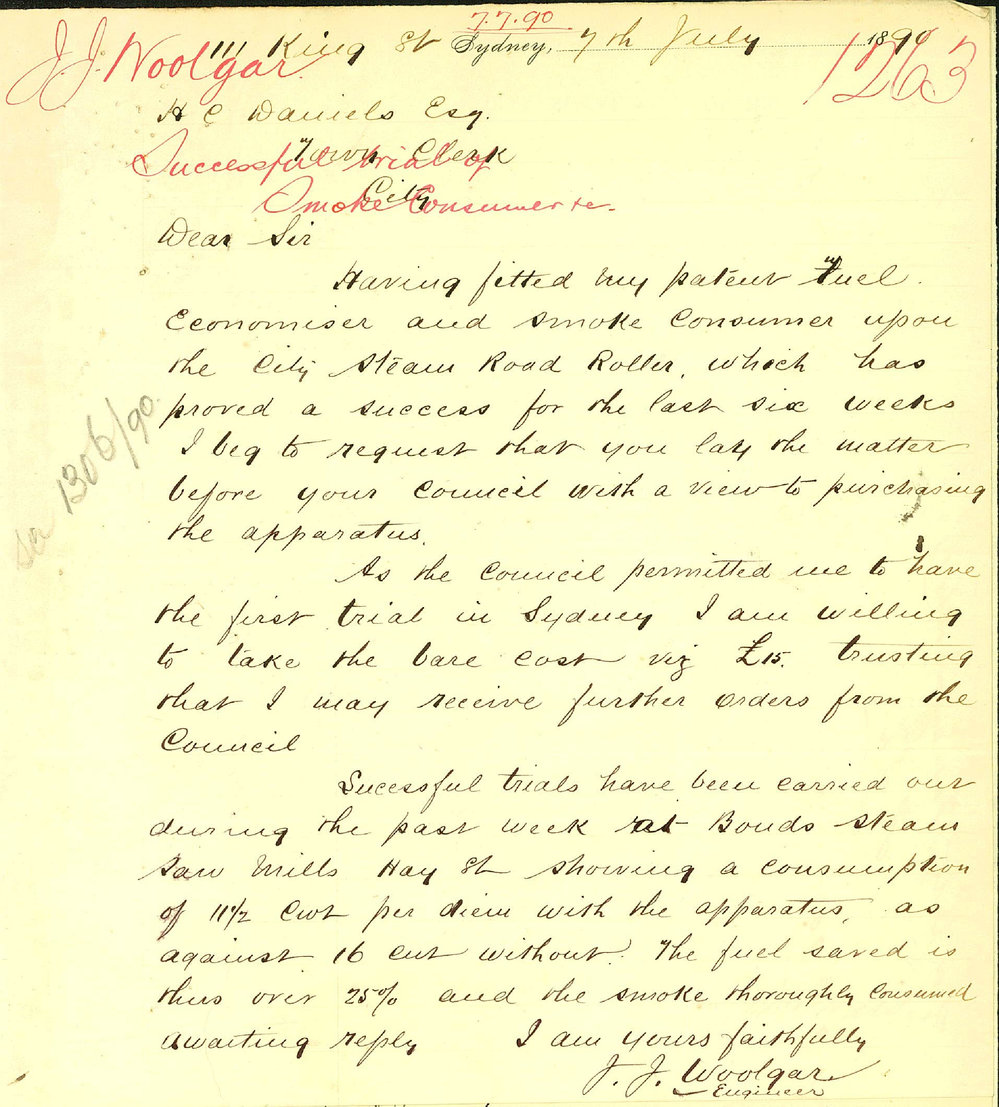 7.7.90
J. J. Woolgar
111 King St Sydney, 7th July 1890
1263
H C Daniels Esq.
Town Clerk
Successful trial of
City
Smoke Consumer &c.
Dear Sir
Having fitted my patent Fuel
Economiser and Smoke Consumer upon
the City Steam Road Roller, which has
proved a success for the last six weeks
I beg to request that you lay the matter
before your Council with a view to purchasing
the apparatus.
1306/90
As the Council permitted me to have
the first trial in Sydney I am willing
to take the bare cost viz £15. trusting
that I may receive further orders from the
Council
Sucessful trials have been carried out
during the past week at Bonds Steam
Saw Mills Hay St showing a consumption
of 11½ Cwt per diem with the apparatus, as
against 16 cwt without. The fuel saved is
thus over 25% and the smoke thoroughly consumed
awaiting reply I am yours faithfully
J. J. Woolgar
Engineer